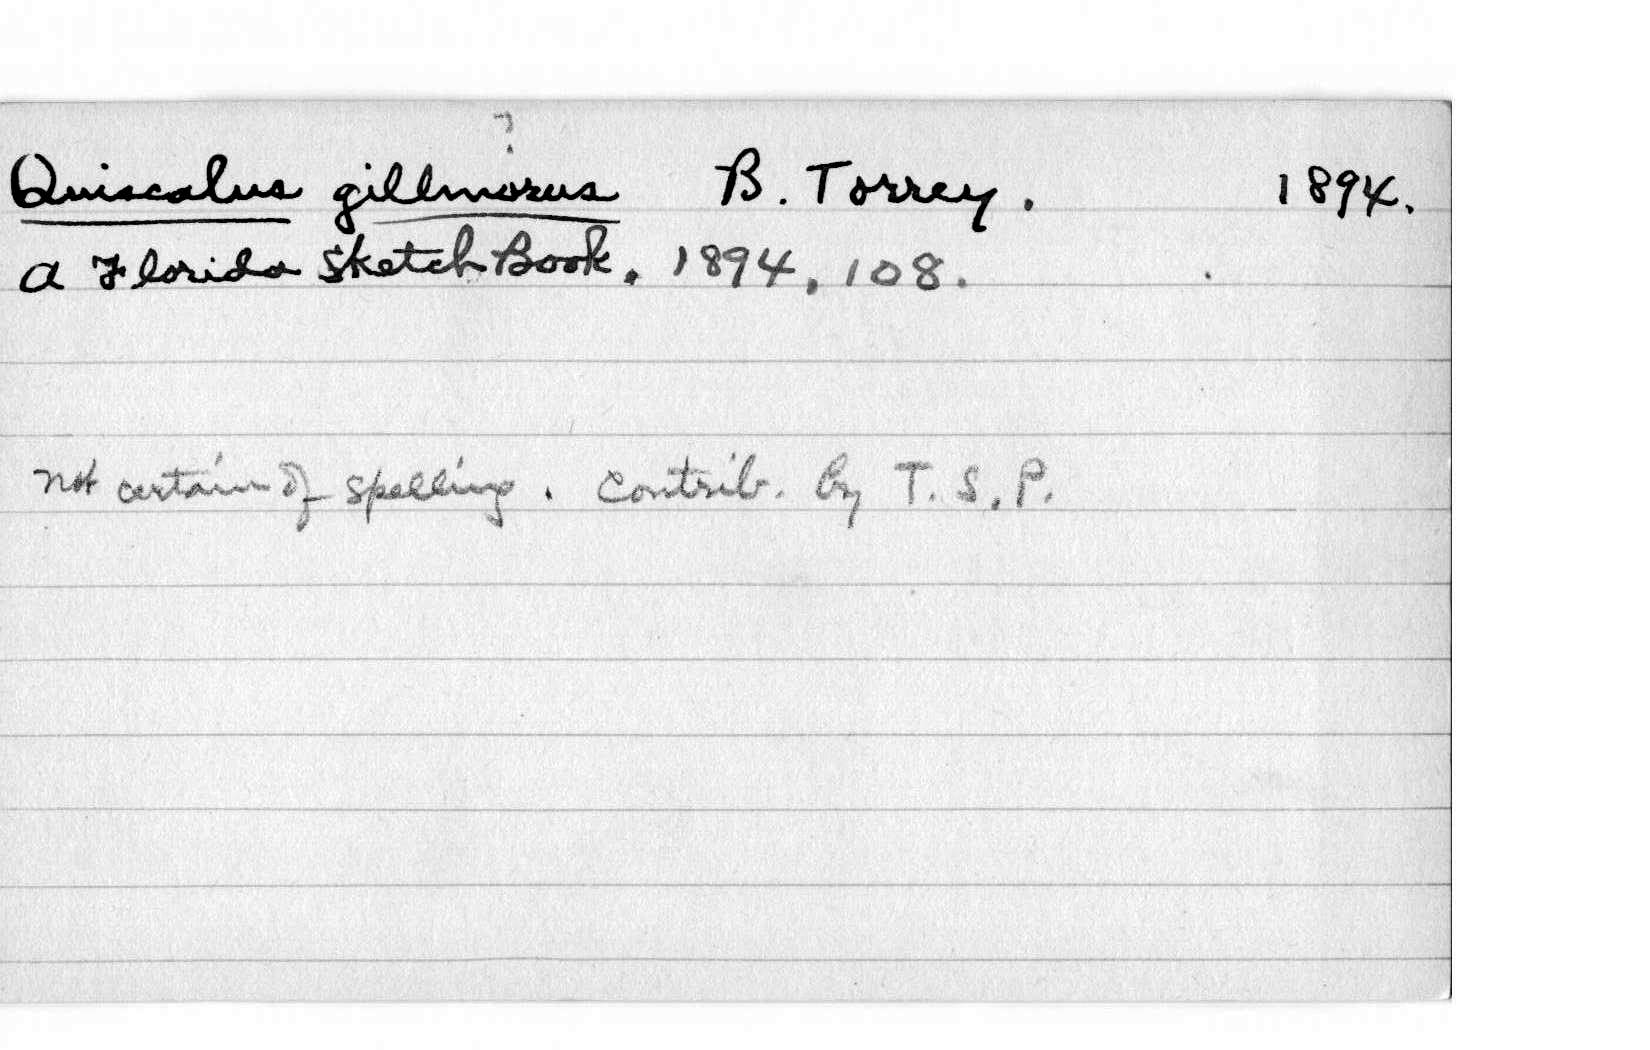 ?
Quiscalus gillmorus B. Torrey. 1894.
A Florida Sketch Book. 1894, 108.
Not certain of spelling. Contrib. by T. S. P.